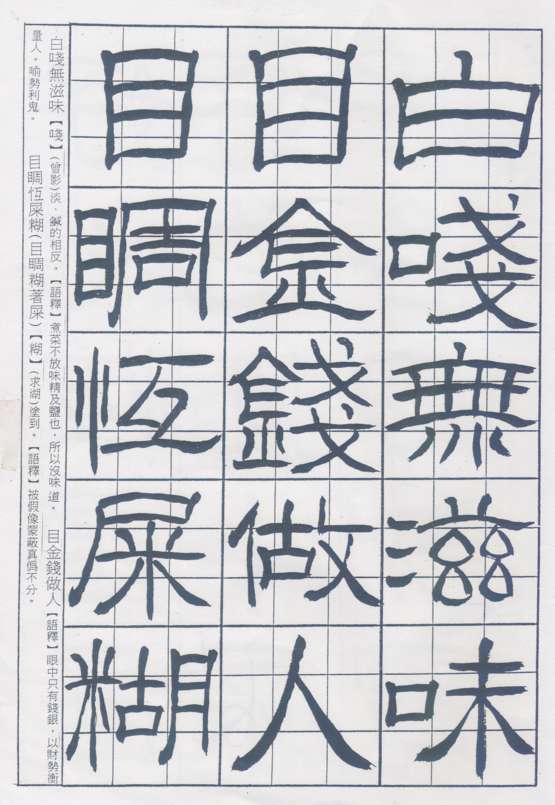 白㖔無滋味
目金錢做人
目睭恆屎糊
白㖔無滋味【㖔】(曾影)淡、鹹的相反。【語釋】煮菜不放味精及鹽也,所以沒味道。 目金錢做人【語釋】眼中只有錢銀,以財勢衡
量人。喻勢利鬼。 目睭恆屎糊(目睭糊著屎)【糊】(求湖)塗到。【語釋】被假像蒙蔽真僞不分。